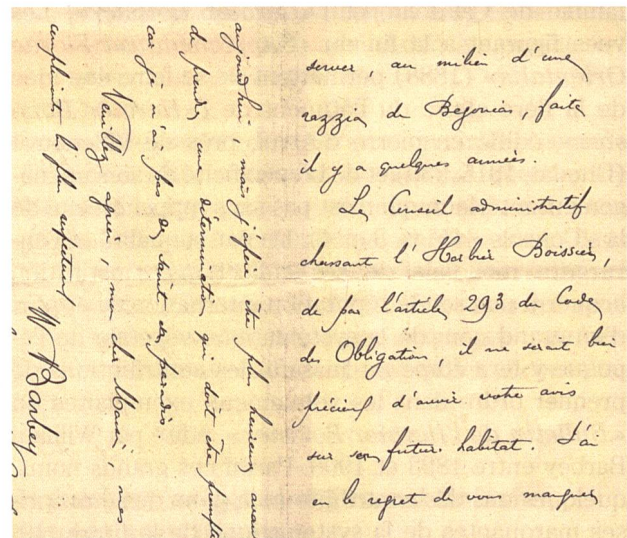 server, au milieu d'une
razzia de Begonias, faite
il y a quelques années.
Le Conseil administratif
chassant l'Herbier Boissier,
de par l'article 293 du Code
des Obligations, il me serait bien
précieux d'avoir votre avis
sur son futur habitat. J'ai
eu le regret de vous manquer
aujourd'hui mais j'espère être plus heureux
de plantes en détermination qui doit être
car je n'ai plus de
Veuillez agréer, mon cher Monsieur, mes
compliments les plus
W Barbey